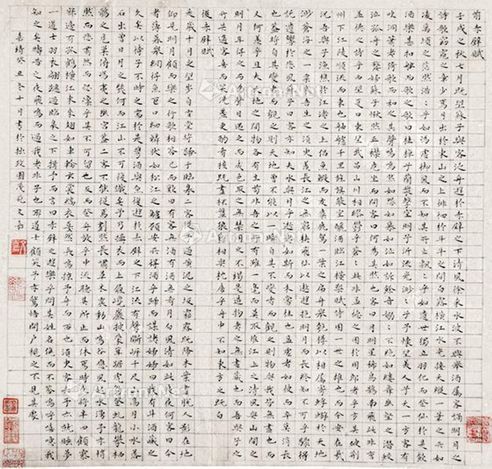 前赤壁賦
壬戌之秋七月既望蘇子與客泛舟遊於赤壁之下清風徐來水波不興舉酒屬客誦明月之
詩歌窈窕之章少焉月出於東山之上徘徊於斗牛之間白露橫江水光接天縱一葦之所如
凌萬頃之茫然浩浩乎如馮虛御風而不知其所止飄飄乎如遺世獨立羽化而登仙於是飲
酒樂甚扣舷而歌之歌曰桂棹兮蘭槳擊空明兮泝流光渺渺兮予懷望美人兮天一方客有
吹洞簫者倚歌而和之其聲嗚嗚然如怨如慕如泣如訴餘音嫋嫋不絕如縷舞幽壑之潛蛟
泣孤舟之嫠婦蘇子愀然正襟危坐而問客曰何為其然也客曰月明星稀烏鵲南飛此非曹
孟德之詩乎西望夏口東望武昌山川相繆鬱乎蒼蒼此非孟德之困於周郎者乎方其破荊
州下江陵順流而東也舳艫千里旌旗蔽空釃酒臨江橫槊賦詩固一世之雄也而今安在哉
況吾與子漁樵於江渚之上侶魚蝦而友麋鹿駕一葉之扁舟舉匏樽以相屬寄蜉蝣於天地
渺滄海之一粟哀吾生之須臾羨長江之無窮挾飛仙以遨遊抱明月而長終知不可乎驟得
託遺響於悲風蘇子曰客亦知夫水與月乎逝者如斯而未嘗往也盈虛者如彼而卒莫消長
也蓋將自其變者而觀之則天地曾不能以一瞬自其不變者而觀之則物與我皆無盡也而
又何羨乎且夫天地之間物各有主苟非吾之所有雖一毫而莫取惟江上之清風與山間之
明月耳得之而為聲目遇之而成色取之無禁用之不竭是造物者之無盡藏也而吾與子之
所共適客喜而笑洗盞更酌肴核既盡杯盤狼藉相與枕藉乎舟中不知東方之既白
後赤壁賦
是歲十月之望步自雪堂將歸于臨皋二客從予過黃泥之坂霜露既降木葉盡脫人影在地
仰見明月顧而樂之行歌相答已而歎曰有客無酒有酒無肴月白風清如此良夜何客曰今
者薄暮舉網得魚巨口細鱗狀如松江之鱸顧安所得酒乎歸而謀諸婦婦曰我有斗酒藏之
久矣以待子不時之需於是攜酒與魚復遊於赤壁之下江流有聲斷岸千尺山高月小水落
石出曾日月之幾何而江山不可復識矣予乃攝衣而上履巉巖披蒙茸踞虎豹登虬龍攀栖
鶻之危巢俯馮夷之幽宮蓋二客不能從焉劃然長嘯草木震動山鳴谷應風起水湧予亦悄
然而悲肅然而恐凜乎其不可留也反而登舟放乎中流聽其所止而休焉時夜將半四顧寂
寥適有孤鶴橫江東來翅如車輪玄裳縞衣戛然長鳴掠予舟而西也須臾客去予亦就睡夢
一道士羽衣翩躚過臨皋之下揖予而言曰赤壁之遊樂乎問其姓名俛而不答嗚呼噫嘻我
知之矣疇昔之夜飛鳴而過我者非子也耶道士顧笑予亦驚悟開戶視之不見其處
嘉靖癸丑冬十月書於拙政園